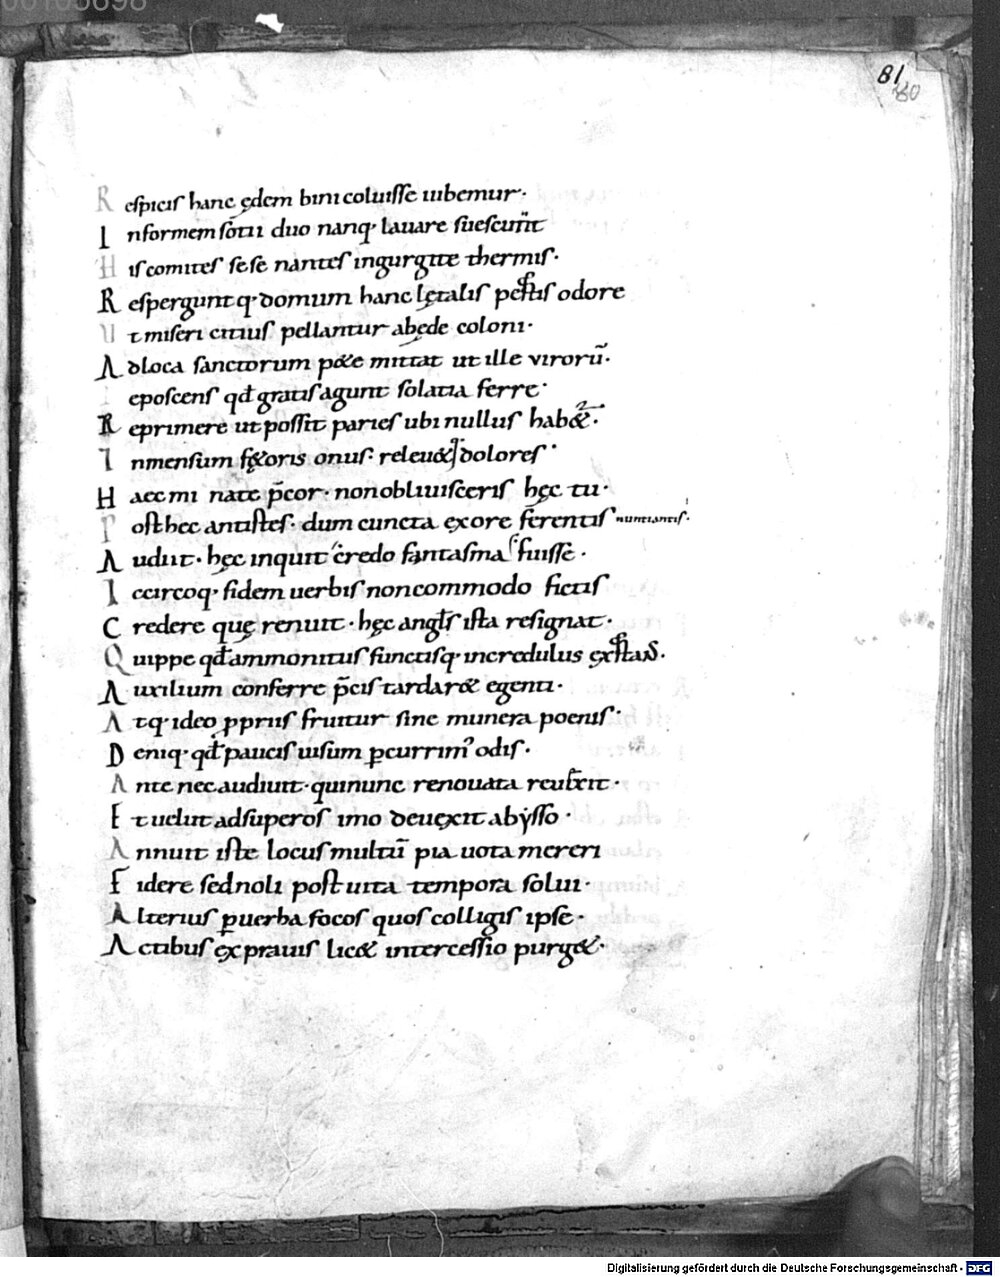 00105698
81
80
Respicis hanc ędem bini coluisse iubemur·
Informem sotii duo nanq· lauare suescunt̄
His comites sese nantes ingurgite thermis·
Respergunt q· domum hanc lętalis pestis odore
Ut miseri citius pellantur abęde coloni·
Ad loca sanctorum p&e mittat ut ille viroru̅·
eposcens qđ gratis agunt solatia ferre·
Reprimere ut possit paries ubi nullus hab&·
Inmensum f&oris onus· releu& dolores·
Haec mi nate p̄cor· non obliuisceris hęc tu·
Post hęc antistes· dum cuncta ex ore ferentis nuntiantis·
Audiit· hęc inquit credo fantasma fuisse·
Iccircoq· fidem uerbis non commodo fictis
Credere quę renuit· hęc angl̄s ista resignat·
Quippe qđ ammonitus functisq· incredulus ęxstas·
Auxilium conferre p̄cis tardar& egenti·
Atq· ideo ꝓpriis fruitur sine munera poenis·
Deniq· qđ paucis uisum ꝑcurrim᾽ odis·
Ante nec audiuit· qui nunc renouata reuix̄it·
Et uelut ad superos imo deuęxit abẏsso·
Annuit iste locus multu̅ pia uota mereri
Fidere sed noli post uita tempora solui·
Alterius ꝑ uerba focos quos colligis ipse·
Actibus ęx prauis lic& intercessio purg&·
Digitalisierung gefördert durch die Deutsche Forschungsgemeinschaft - DFG